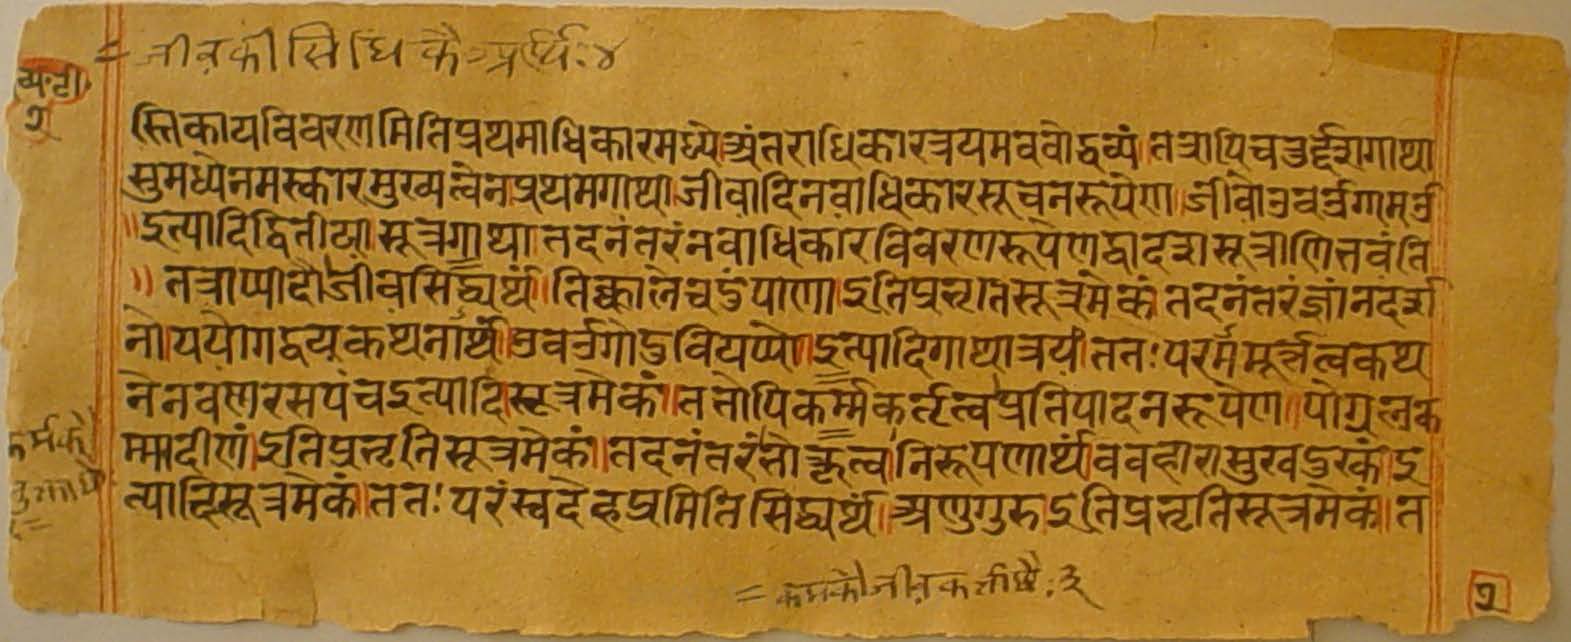 = जीवकी सिधि कै अर्थि: ४
स्तिकायविवरणमितिप्रथमाधिकारमध्ये॥अंतराधिकारत्रयमववोद्धव्यं।तत्रापिचतुर्द्दशगाथा
सुमध्येनमस्कारमुख्यत्वेन।प्रथमगाथा।जीवादिनवाधिकारसूचनरूपेण॥जीवोउवउगामउ
॥इत्यादिद्वितीया।सूत्रगाथा।तदनंतरंनवाधिकारविवरणरूपेणद्वादशसूत्राणिभवंति
॥तत्राप्यादौ।जीवसिद्ध्यर्थं॥तिक्कालेचदुपाणा।इतिप्रभृतिसूत्रमेकं।तदनंतरंज्ञानदर्श
नोपयोगद्वयकथनार्थं।उवउगोदुवियप्पो॥इत्यादिगाथात्रयं।ततःपरममूर्त्तत्वकथ
नेनवणरसपंचइत्यादि।सूत्रमेकं॥ततोपिकर्म्मकर्तृत्वप्रतिपादनरूपेण॥पोग्गलक
म्मादीणं।इतिप्रभृतिसूत्रमेकं॥तदनंतरंभोक्तृत्वनिरूपणार्थं।ववहारासुखदुरकं।इ
त्यादिसूत्रमेकं।ततःपरंस्वदेहप्रमितिसिद्ध्यर्थं॥अणुगुरु।इतिप्रभृतिसूत्रमेकं।त
२